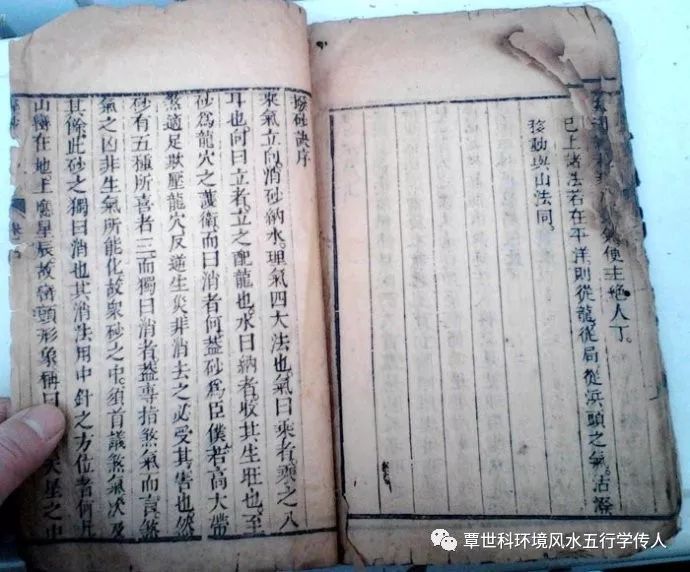 便主絕人丁。
已上諸法若在平洋則從龍從局從浜頭之氣。沾
移動與山法同。
撥砂訣序
來氣立向消砂納水。理氣四大法也。氣曰乘者。乘之入
耳也。向曰立者。立之配龍也。水曰納者。收其生旺也。至
砂爲龍穴之護衛。而曰消者何。蓋砂爲臣僕。若高大帶
煞適足欺壓龍穴。反逆生災。非消去之必受其害也。然
砂有五種所喜者三。而獨曰消者。蓋專指煞氣而言。煞
氣之凶非生氣所能化。故衆砂之中。須首議煞氣次及
其餘。此砂之獨曰消也。其消法用中針之方位者何。凡
山巒在地上應星辰。故巒頭形象稱曰天星之中
覃世科环境风水五行学传人